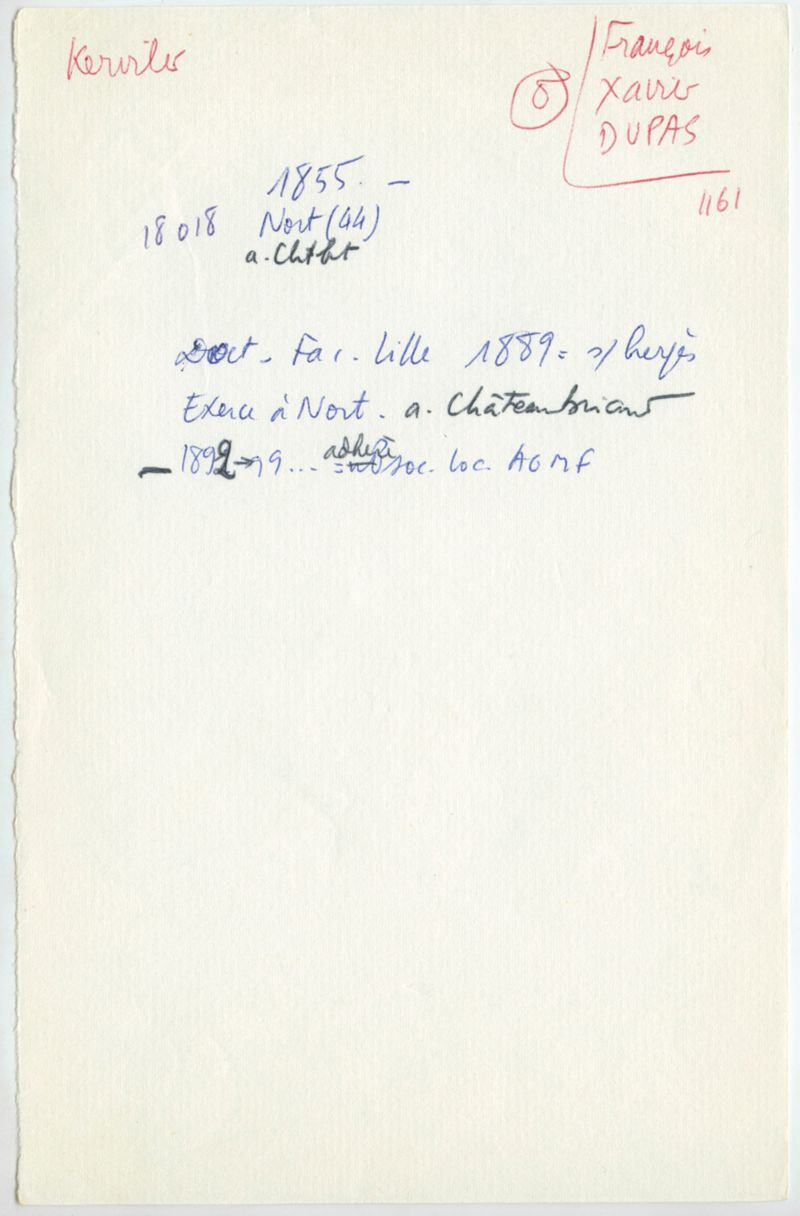 Kerviler
François
Xavier
DUPAS
1161
1855. -
18018 Nort (44)
a. Chtbt
Doct. Fac. Lille 1889 = s/ herpès
Exerce à Nort. a. Châteaubriant
- 1892 → 19... = adhère soc. loc. AGMF